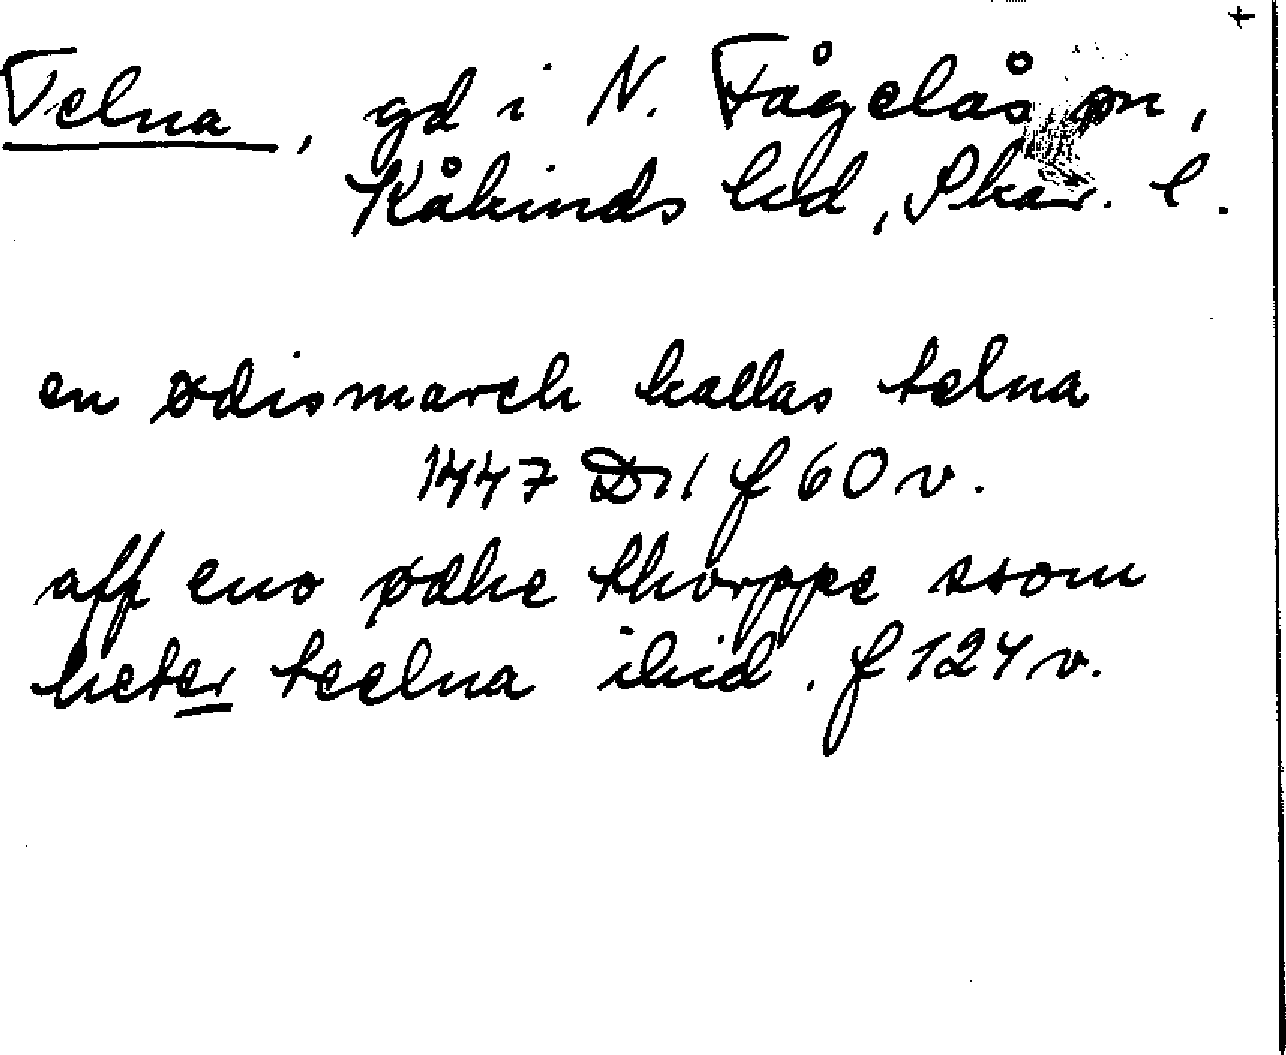 Telna, gd i N. Fågelås sn,
Kåkinds hd, Skar. l.
en ødismarch kallas telna
1447 D11 f 60 v.
aff eno ødhe thorppe ssom
heter teelna ibid. f 124 v.